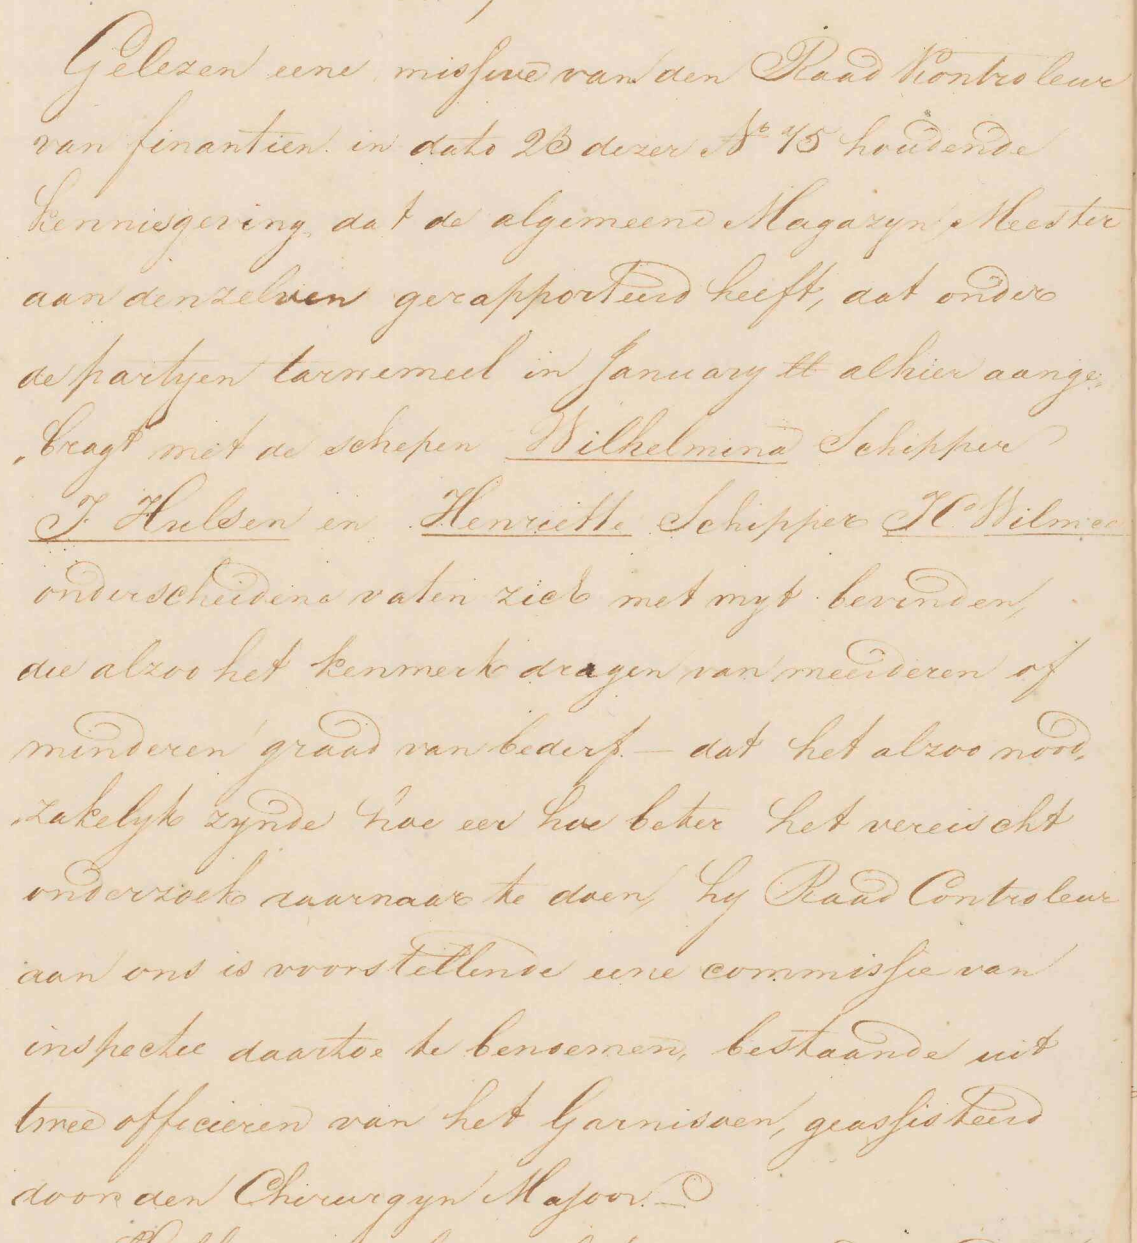 Gelezen eene missive van den Raad Kontroleur
van finantien in dato 23 dezer No 75 houdende
kennisgeving dat de algemeene Magazyn Meester
aan denzelven gerapporteerd heeft, dat onder
de partyen tarwemeel in January ll alhier aange-
bragt met de schepen Wilhelmina Schipper
J. Hulsen en Henriette Schipper HC Wilmers
onderscheidene vaten zich met myt bevinden,
die alzoo het kenmerk dragen van meerderen of
minderen graad van bederf. — dat het alzoo nood-
zakelyk zynde hoe eer hoe beter het vereischt
onderzoek daarnaar te doen, hy Raad Controleur
aan ons is voorstellende eene commissie van
inspectie daartoe te benoemen, bestaande uit
twee officieren van het Garnisoen, geassisteerd
door den Chirurgyn Majoor. —